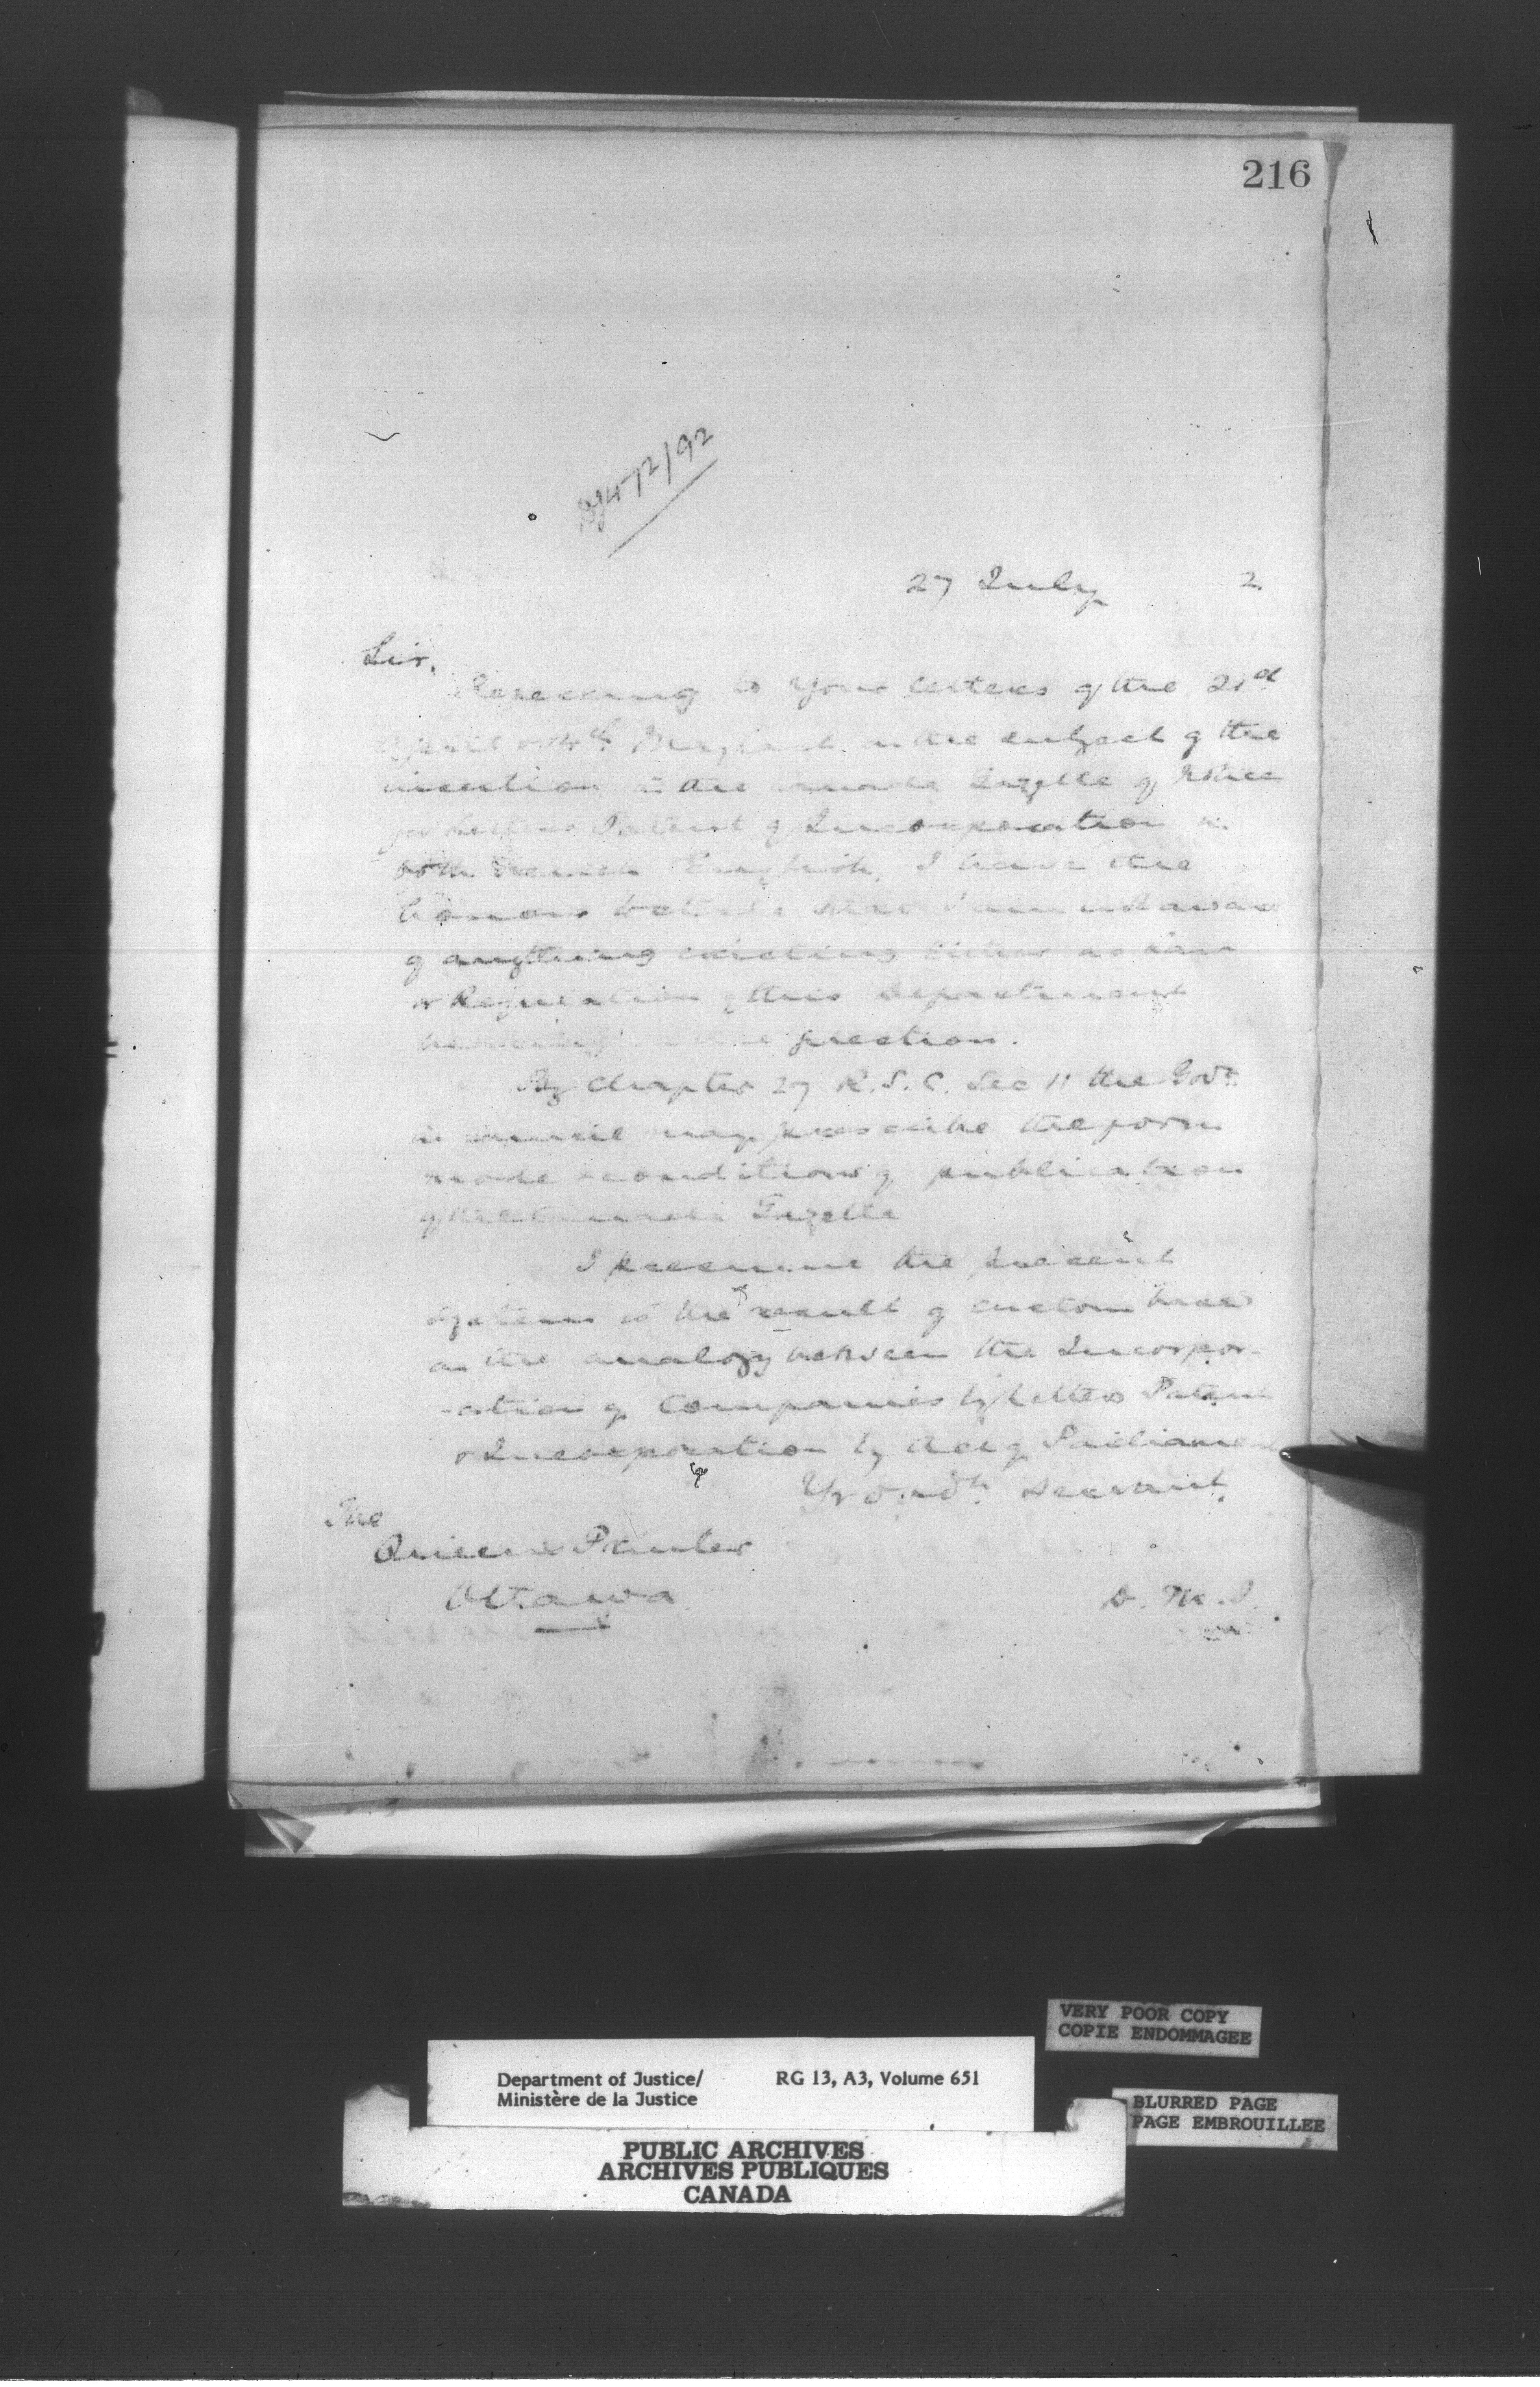 216
472/92
27 July 2
Sir,
Referring to your letters of the 21st
April & 14th on the subject of the
insertion in the Gazette of Notices
for Letters Patent of Incorporation in
both French English, I have the
honour to state that I am not aware
of anything existing either as Law
or Regulation of this Department
question.
By Chapter 27 R.S.C. Sec 11 the Govr.
in Council may prescribe the form
mode & conditions of publication
of the Gazette
I presume the present
system is the result of custom based
on the analogy between the Incorpor-
-ation of Companies by Letters Patent
& Incorporation by Act of Parliament
Yr obdt. servant.
The
Queens Printer
Ottawa
D. M. J.
VERY POOR COPY
COPIE ENDOMMAGEE
Department of Justice/ RG 13, A3, Volume 651
Ministère de la Justice
BLURRED PAGE
PAGE EMBROUILLEE
PUBLIC ARCHIVES
ARCHIVES PUBLIQUES
CANADA